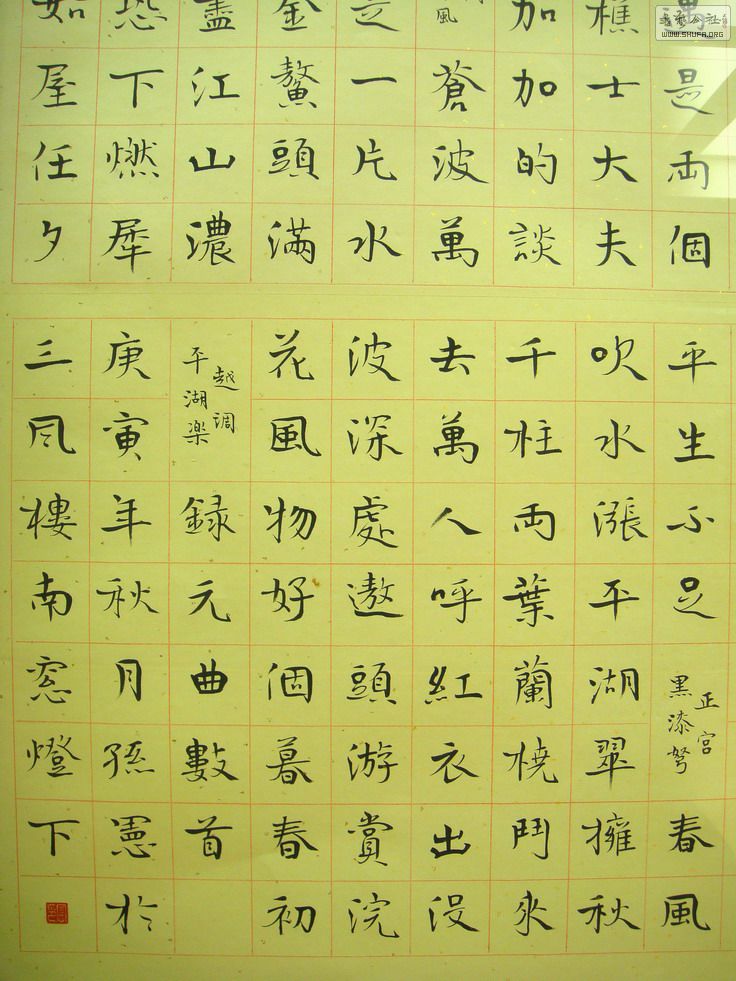 是兩個
樵士大夫
加加的談
風
蒼波萬
一片水
金鰲頭滿
盡江山濃
恐下燃犀
如屋任夕
平生不足
正宮
黑漆弩
春風
吹水漲平湖翠擁秋
千柱兩葉蘭橈鬥來
去萬人呼紅衣出沒
波深處遨頭游賞浣
花風物好個暮春初
越調
平湖樂
録元曲數首
庚寅年秋月孫憲於
三風樓南窓燈下
WWW.SHUFA.ORG